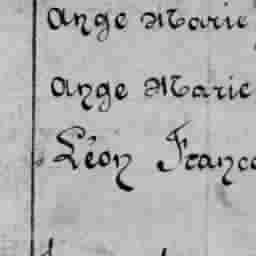 Ange Marie
Ange Marie
Léon Franço